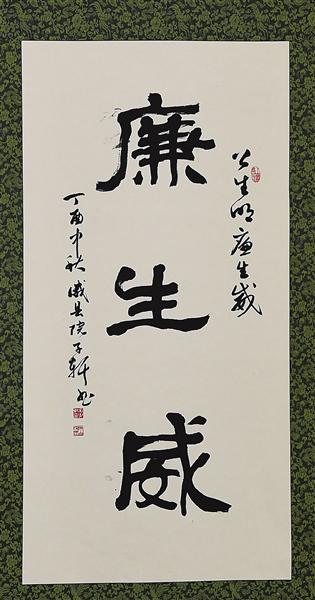 公生明廉生威
廉生威
丁酉中秋威县院子轩书